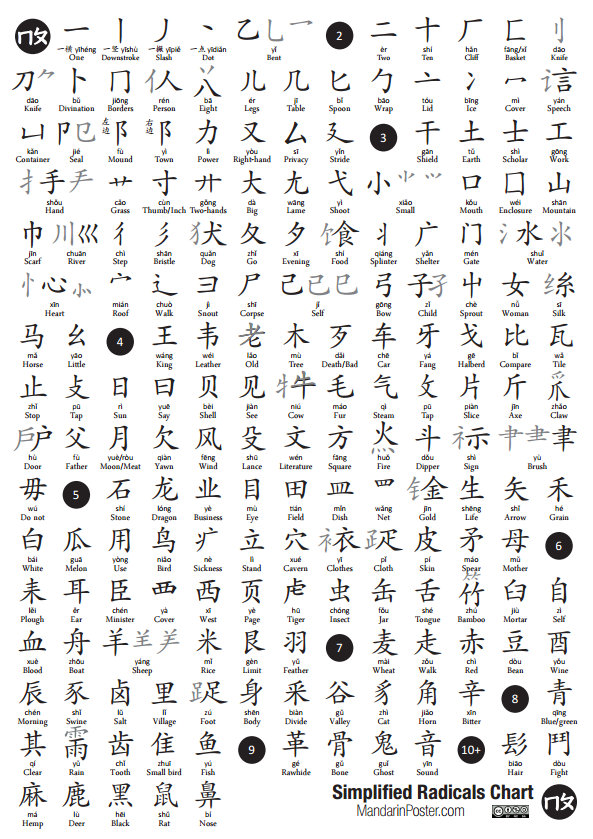 一 丨 丿 丶 乙乚乛 2 二 十 厂 匚 刂
一横 yīhéng 一竖 yīshù 一撇 yīpiě 一点 yīdiǎn yǐ èr shí hǎn fāng/xǐ dāo
One Downstroke Slash Dot Bent Two Ten Cliff Basket Knife
刀⺈ 卜 冂 亻人 八 儿 几 匕 勹 亠 冫 冖 讠言
dāo bǔ jiōng rén bā ér jī bǐ bāo tóu bīng mì yán
Knife Divination Borders Person Eight Legs Table Spoon Wrap Lid Ice Cover Speech
凵 卩㔾 左边 阝 右边 阝 力 又 厶 廴 3 干 土 士 工
kǎn jié fù yì lì yòu sī yǐn gān tǔ shì gōng
Container Seal Mound Town Power Right-hand Privacy Stride Shield Earth Scholar Work
扌手龵 艹 寸 廾 大 尢 弋 小⺌⺍ 口 囗 山
shǒu cǎo cùn gǒng dà wāng yì xiǎo kǒu wéi shān
Hand Grass Thumb/Inch Two-hands Big Lame Shoot Small Mouth Enclosure Mountain
巾 川巛 彳 彡 犭犬 夂 夕 饣食 丬 广 门 氵水氺
jīn chuān chì shān quǎn zhǐ xī shí qiáng yǎn mén shuǐ
Scarf River Step Bristle Dog Go Evening Food Splinter Shelter Gate Water
忄心⺗ 宀 辶 彐 尸 己已巳 弓 子孑 屮 女 纟糹
xīn mián chuò jì shī jǐ gōng zǐ chè nǚ sī
Heart Roof Walk Snout Corpse Self Bow Child Sprout Woman Silk
马 幺 4 王 韦 老 木 歹 车 牙 戈 比 瓦
mǎ yāo wáng wéi lǎo mù dǎi chē yá gē bǐ wǎ
Horse Little King Leather Old Tree Death/Bad Car Fang Halberd Compare Tile
止 攴 日 曰 贝 见 牜牛 毛 气 攵 片 斤 爫爪
zhǐ pū rì yuē bèi jiàn niú máo qì pū piàn jīn zhǎo
Stop Tap Sun Say Shell See Cow Fur Steam Tap Slice Axe Claw
戶户 父 月 欠 风 殳 文 方 灬火 斗 礻示 肀⺻聿
hù fù yuè/ròu qiàn fēng shū wén fāng huǒ dǒu shì yù
Door Father Moon/Meat Yawn Wind Lance Literature Square Fire Dipper Sign Brush
毋 5 石 龙 业 目 田 皿 罒 钅金 生 矢 禾
wú shí lóng yè mù tián mǐn wǎng jīn shēng shǐ hé
Do not Stone Dragon Business Eye Field Dish Net Gold Life Arrow Grain
白 瓜 用 鸟 疒 立 穴 衤衣 ⺪疋 皮 矛 母 6
bái guā yòng niǎo nè lì xué yī pǐ pí máo mǔ
White Melon Use Bird Sickness Stand Cavern Clothes Cloth Skin Spear Mother
耒 耳 臣 覀 西 页 虍 虫 缶 舌 竹 臼 自
lěi ěr chén yà xī yè hǔ chóng fǒu shé zhú jiù zì
Plough Ear Minister Cover West Page Tiger Insect Jar Tongue Bamboo Mortar Self
血 舟 羊⺷⺶ 米 艮 羽 7 麦 走 赤 豆 酉
xuè zhōu yáng mǐ gèn yǔ mài zǒu chì dòu yǒu
Blood Boat Sheep Rice Limit Feather Wheat Walk Red Bean Wine
辰 豕 卤 里 ⻊足 身 釆 谷 豸 角 辛 8 青
chén shǐ lǔ lǐ zú shēn biàn gǔ zhì jiǎo xīn qīng
Morning Swine Salt Village Foot Body Divide Valley Cat Horn Bitter Blue/green
其 雨 齿 隹 鱼 9 革 骨 鬼 音 10+ 髟 鬥
qí yǔ chǐ zhuī yú gé gǔ guǐ yīn biāo dòu
Clear Rain Tooth Small bird Fish Rawhide Bone Ghost Sound Hair Fight
麻 鹿 黑 鼠 鼻
má lù hēi shǔ bí
Hemp Deer Black Rat Nose
Simplified Radicals Chart
MandarinPoster.com